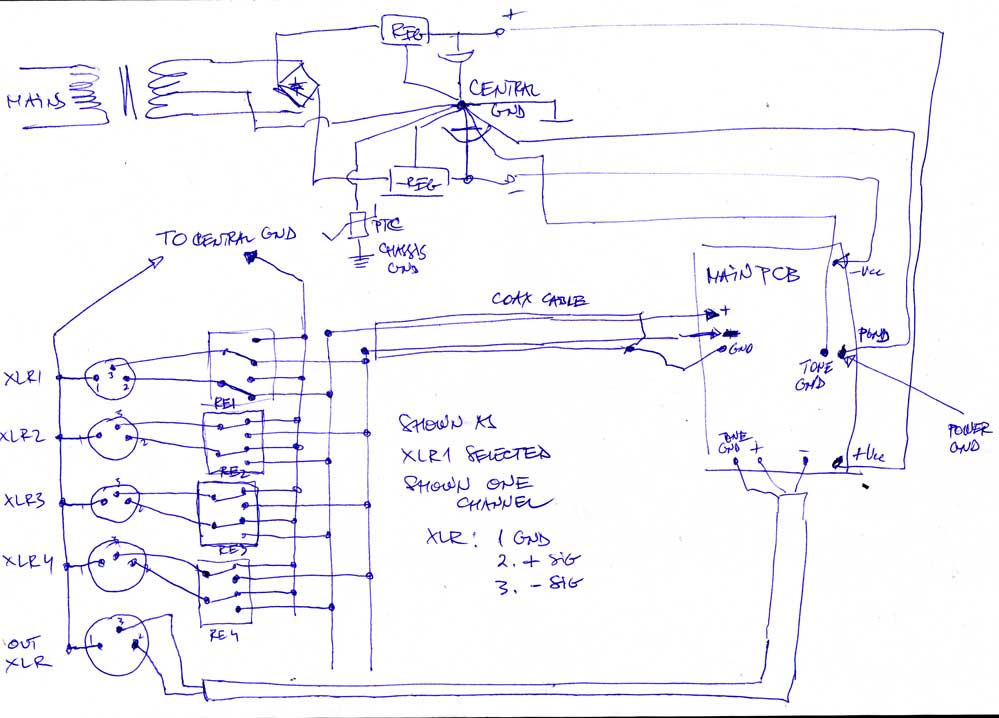 +
REG
MAINS
CENTRAL
GND
-REG
-
PTC
CHASSIS
GND
TO CENTRAL GND
MAIN PCB
-Vcc
COAX CABLE
+
-
GND
PGND
TONE
GND
XLR1
3
1
2
RE1
POWER
GND
XLR2
3
1
2
RE2
SHOWN AS
XLR1 SELECTED
SHOWN ONE
CHANNEL
XLR: 1 GND
2. + SIG
3. - SIG
TONE
GND
+
-
+Vcc
XLR3
3
1
2
RE3
XLR4
3
1
2
RE4
OUT
XLR
3
1
2